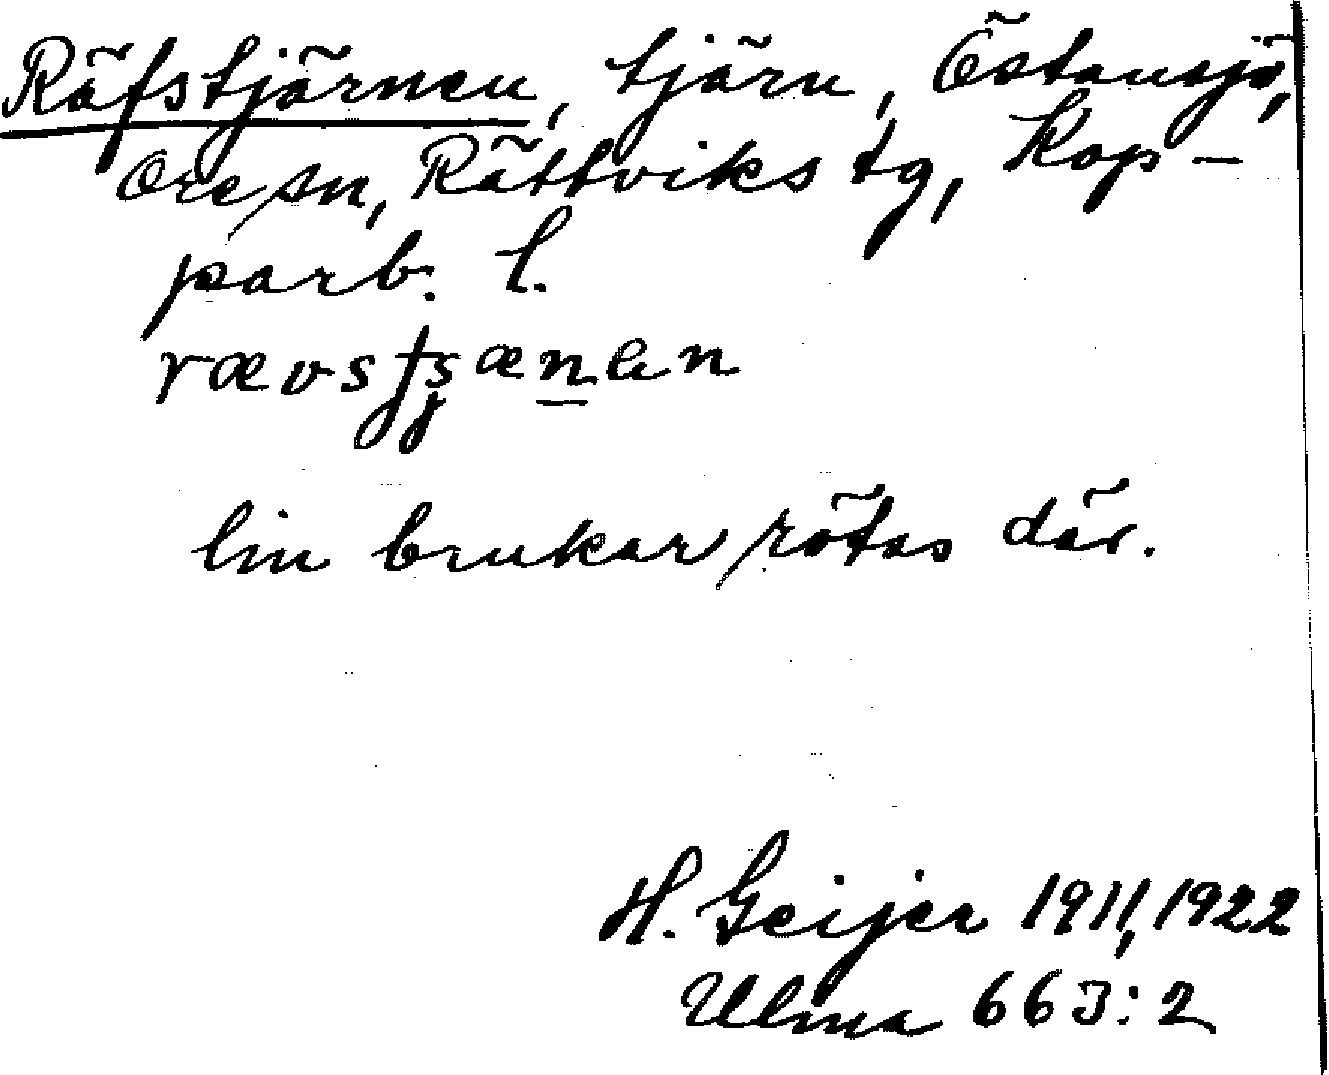 Räfstjärnen, tjärn, Östansjö,
Ore sn, Rättviks tg, Kop-
parb. l.
lin brukar rötas där.
H. Geijer 1911, 1922
Ulma 663:2